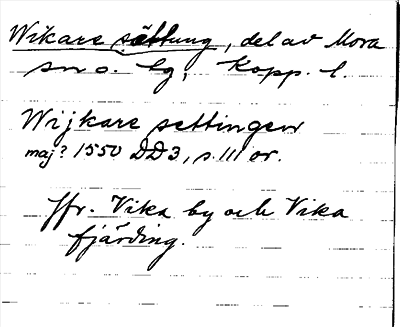 Wikare sättung, del av Mora
sn o. lg, Kopp. l.
Wijkare settingen
maj? 1550 DD3, s. 111 or.
Jfr. Vika by och Vika
fjärding.